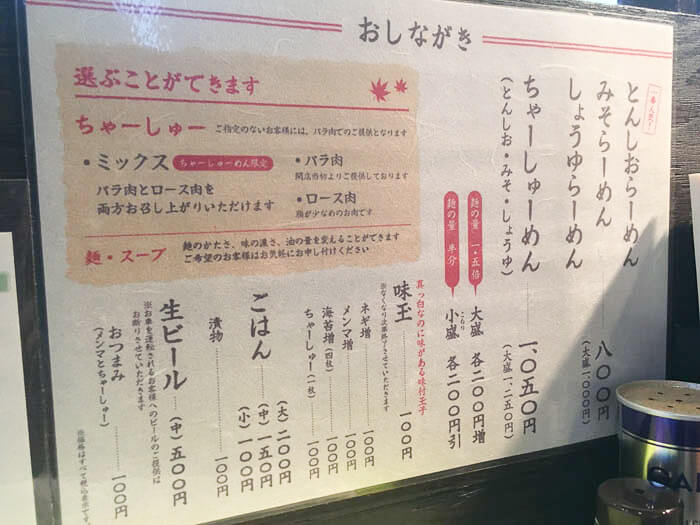 おしながき
一番人気！
とんしおらーめん
みそらーめん
しょうゆらーめん
八〇〇円
（大盛一、〇〇〇円）
ちゃーしゅーめん
（とんしお・みそ・しょうゆ）
一、〇五〇円
（大盛一、二五〇円）
麺の量 一・五倍
大盛 各二〇〇円増
麺の量 半分
小盛 各二〇〇円引
こもり
選ぶことができます
ちゃーしゅー
ご指定のないお客様には、バラ肉でのご提供となります
・ミックス
ちゃーしゅーめん限定
バラ肉とロース肉を
両方お召し上がりいただけます
・バラ肉
開店当初よりご提供しております
・ロース肉
脂が少なめのお肉です
麺・スープ
麺のかたさ、味の濃さ、油の量を変えることができます
ご希望のお客様はお気軽にお申し付けください
真っ白なのに味がある味付玉子
味玉
一〇〇円
※なくなり次第終了させていただきます
ネギ増
一〇〇円
メンマ増
一〇〇円
海苔増（四枚）
一〇〇円
ちゃーしゅー（一枚）
一〇〇円
ごはん
（大）二〇〇円
（中）一五〇円
（小）一〇〇円
漬物
一〇〇円
生ビール
（中）五〇〇円
※お車を運転されるお客様へのビールのご提供は
お断りさせていただきます
おつまみ
（メンマとちゃーしゅー）
一〇〇円
※価格はすべて税込表示です。